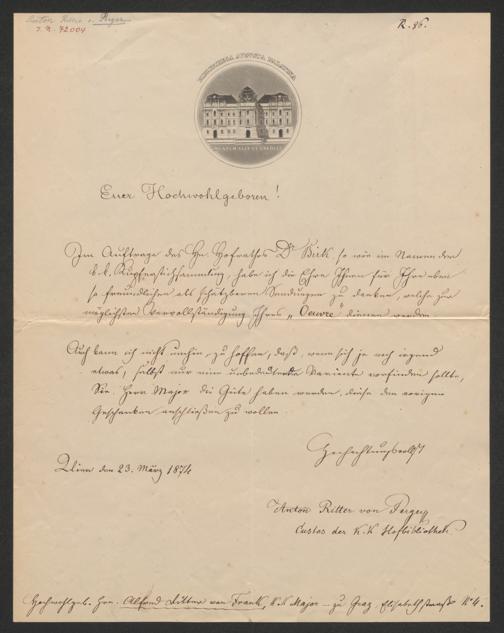 Anton Ritter v. Perger
R. 96.
BIBLIOTHECA AVGVSTA PALATINA
Euer Hochwohlgeboren!
Im Auftrage des Hn. Hofrathes Dr Birk so wie im Namen der
k. k. Kupferstichsammlung, habe ich die Ehre Ihnen für Ihre eben
so freundlichen als schätzbaren Sendungen zu danken, welche zur
möglichsten Vervollständigung Ihres „Oeuvre dienen werden
Auch kann ich nicht umhin zu hoffen, daß, wenn sich je noch irgend
etwas, selbst nur eine unbedeutende Variante vorfinden sollte,
Sie Herr Major die Güte haben werden, diese den vorigen
Geschenken anschließen zu wollen
Hochachtungsvollst
Wien den 23. März 1874
Anton Ritter von Perger
Custos der K. K Hofbibliothek
Hochwohlgeb. Hrn. Alfred Ritter von Frank, K.K Major – zu Graz. Elisabethstraße No 4.